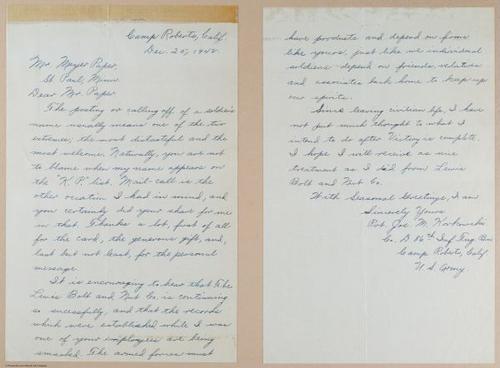 Camp Roberts, Calif.
Dec. 20, 1942.
Mr. Mayer Paper
St Paul, Minn.
Dear Mr. Paper
The posting or calling off of a soldiers
name usually means one of the two
extremes, the most distasteful and the
most welcome. Naturally, you are not
to blame when my name appears on
the "K. P." list. Mail-call is the
other occasion I had in mind, and
you certainly did your share for me
in that. Thanks a lot, first of all
for the card, the generous gift, and,
last but not least, for the personal
message.
It is encouraging to hear that The
Lewis Bolt and Nut Co. is continuing
so sucessfully, and that the records
which were established while I was
one of your employees are being
smashed. The armed forces must
have products and depend on firms
like yours, just like we individual
soldiers depend on friends, relatives
and associates back home to keep up
our spirits.
Since leaving civilian life, I have
not put much thought to what I
intend to do after Victory is complete.
I hope I will receive as nice
treatment as I did from Lewis
Bolt and Nut Co.
With Seasonal Greetings, I am
Sincerely Yours
Pvt. Joe M.
Co. B 86th Inf Trng Bn
Camp Roberts, Calif.
U S Army